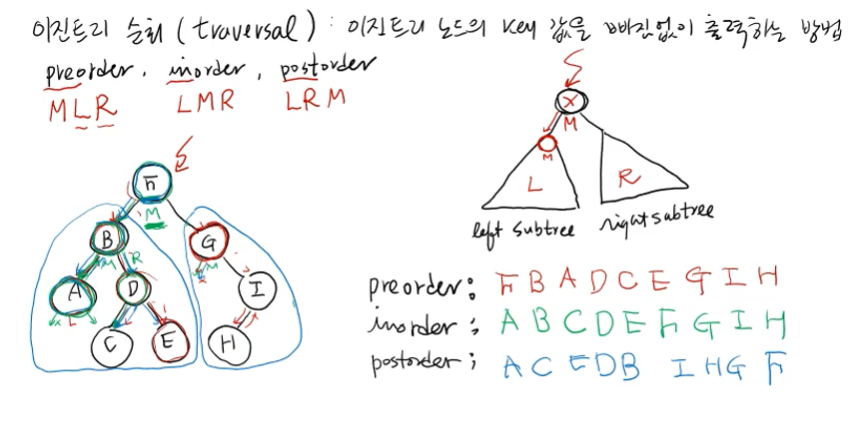 이진트리 순회 (traversal) : 이진트리 노드의 key 값을 빠짐없이 출력하는 방법
preorder, inorder, postorder
MLR LMR LRM
X
M
M
L R
left subtree right subtree
F
M
B G
M R M
A D I
x L x
C E H
preorder: F B A D C E G I H
inorder: A B C D E F G I H
postorder; A C E D B I H G F